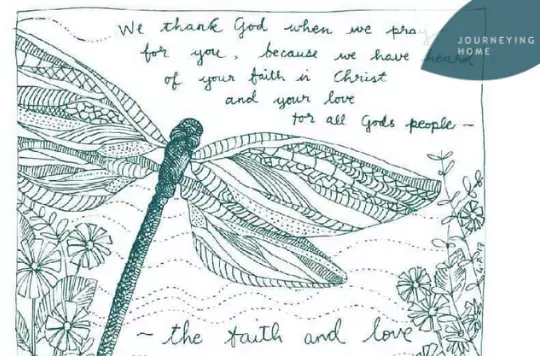 We thank God when we pray
for you, because we have heard
of your faith in Christ
and your love
for all Gods people —
~ the faith and love
JOURNEYING
HOME